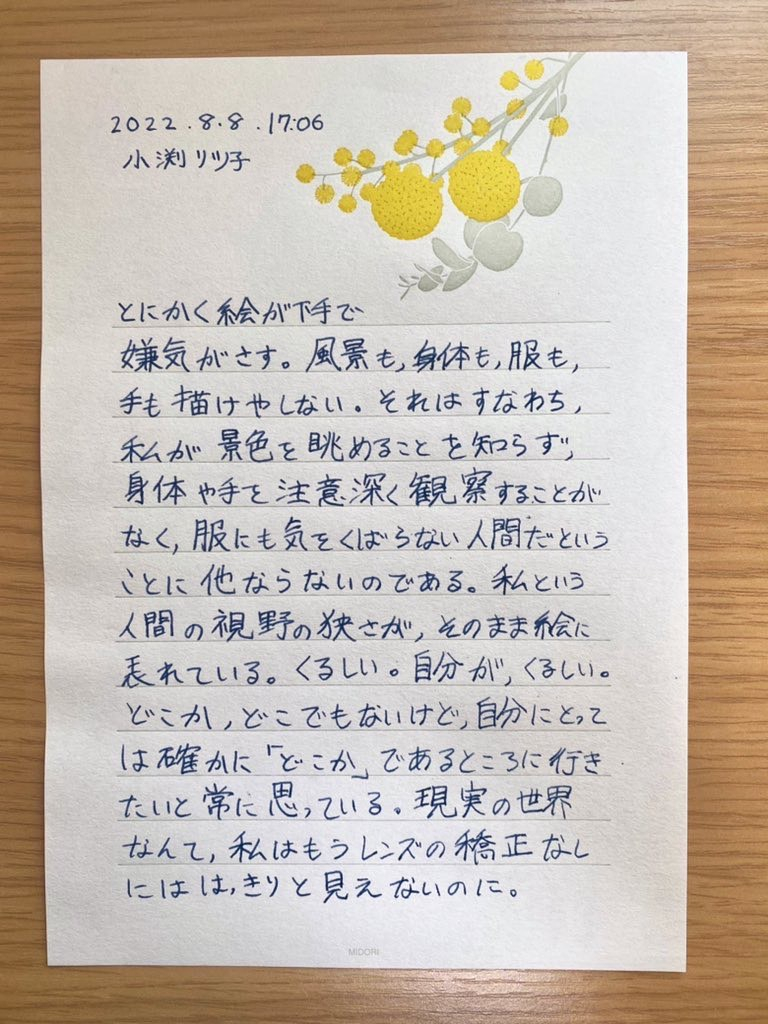 2022.8.8.17:06
小渕リツ子
とにかく絵が下手で
嫌気がさす。風景も,身体も,服も,
手も描けやしない。それはすなわち,
私が景色を眺めることを知らず,
身体や手を注意深く観察することが
なく,服にも気をくばらない人間だという
ことに他ならないのである。私という
人間の視野の狭さが,そのまま絵に
表れている。くるしい。自分が,くるしい。
どこか,どこでもないけど,自分にとって
は確かに「どこか」であるところに行き
たいと常に思っている。現実の世界
なんて,私はもうレンズの矯正なし
にははっきりと見えないのに。
MIDORI